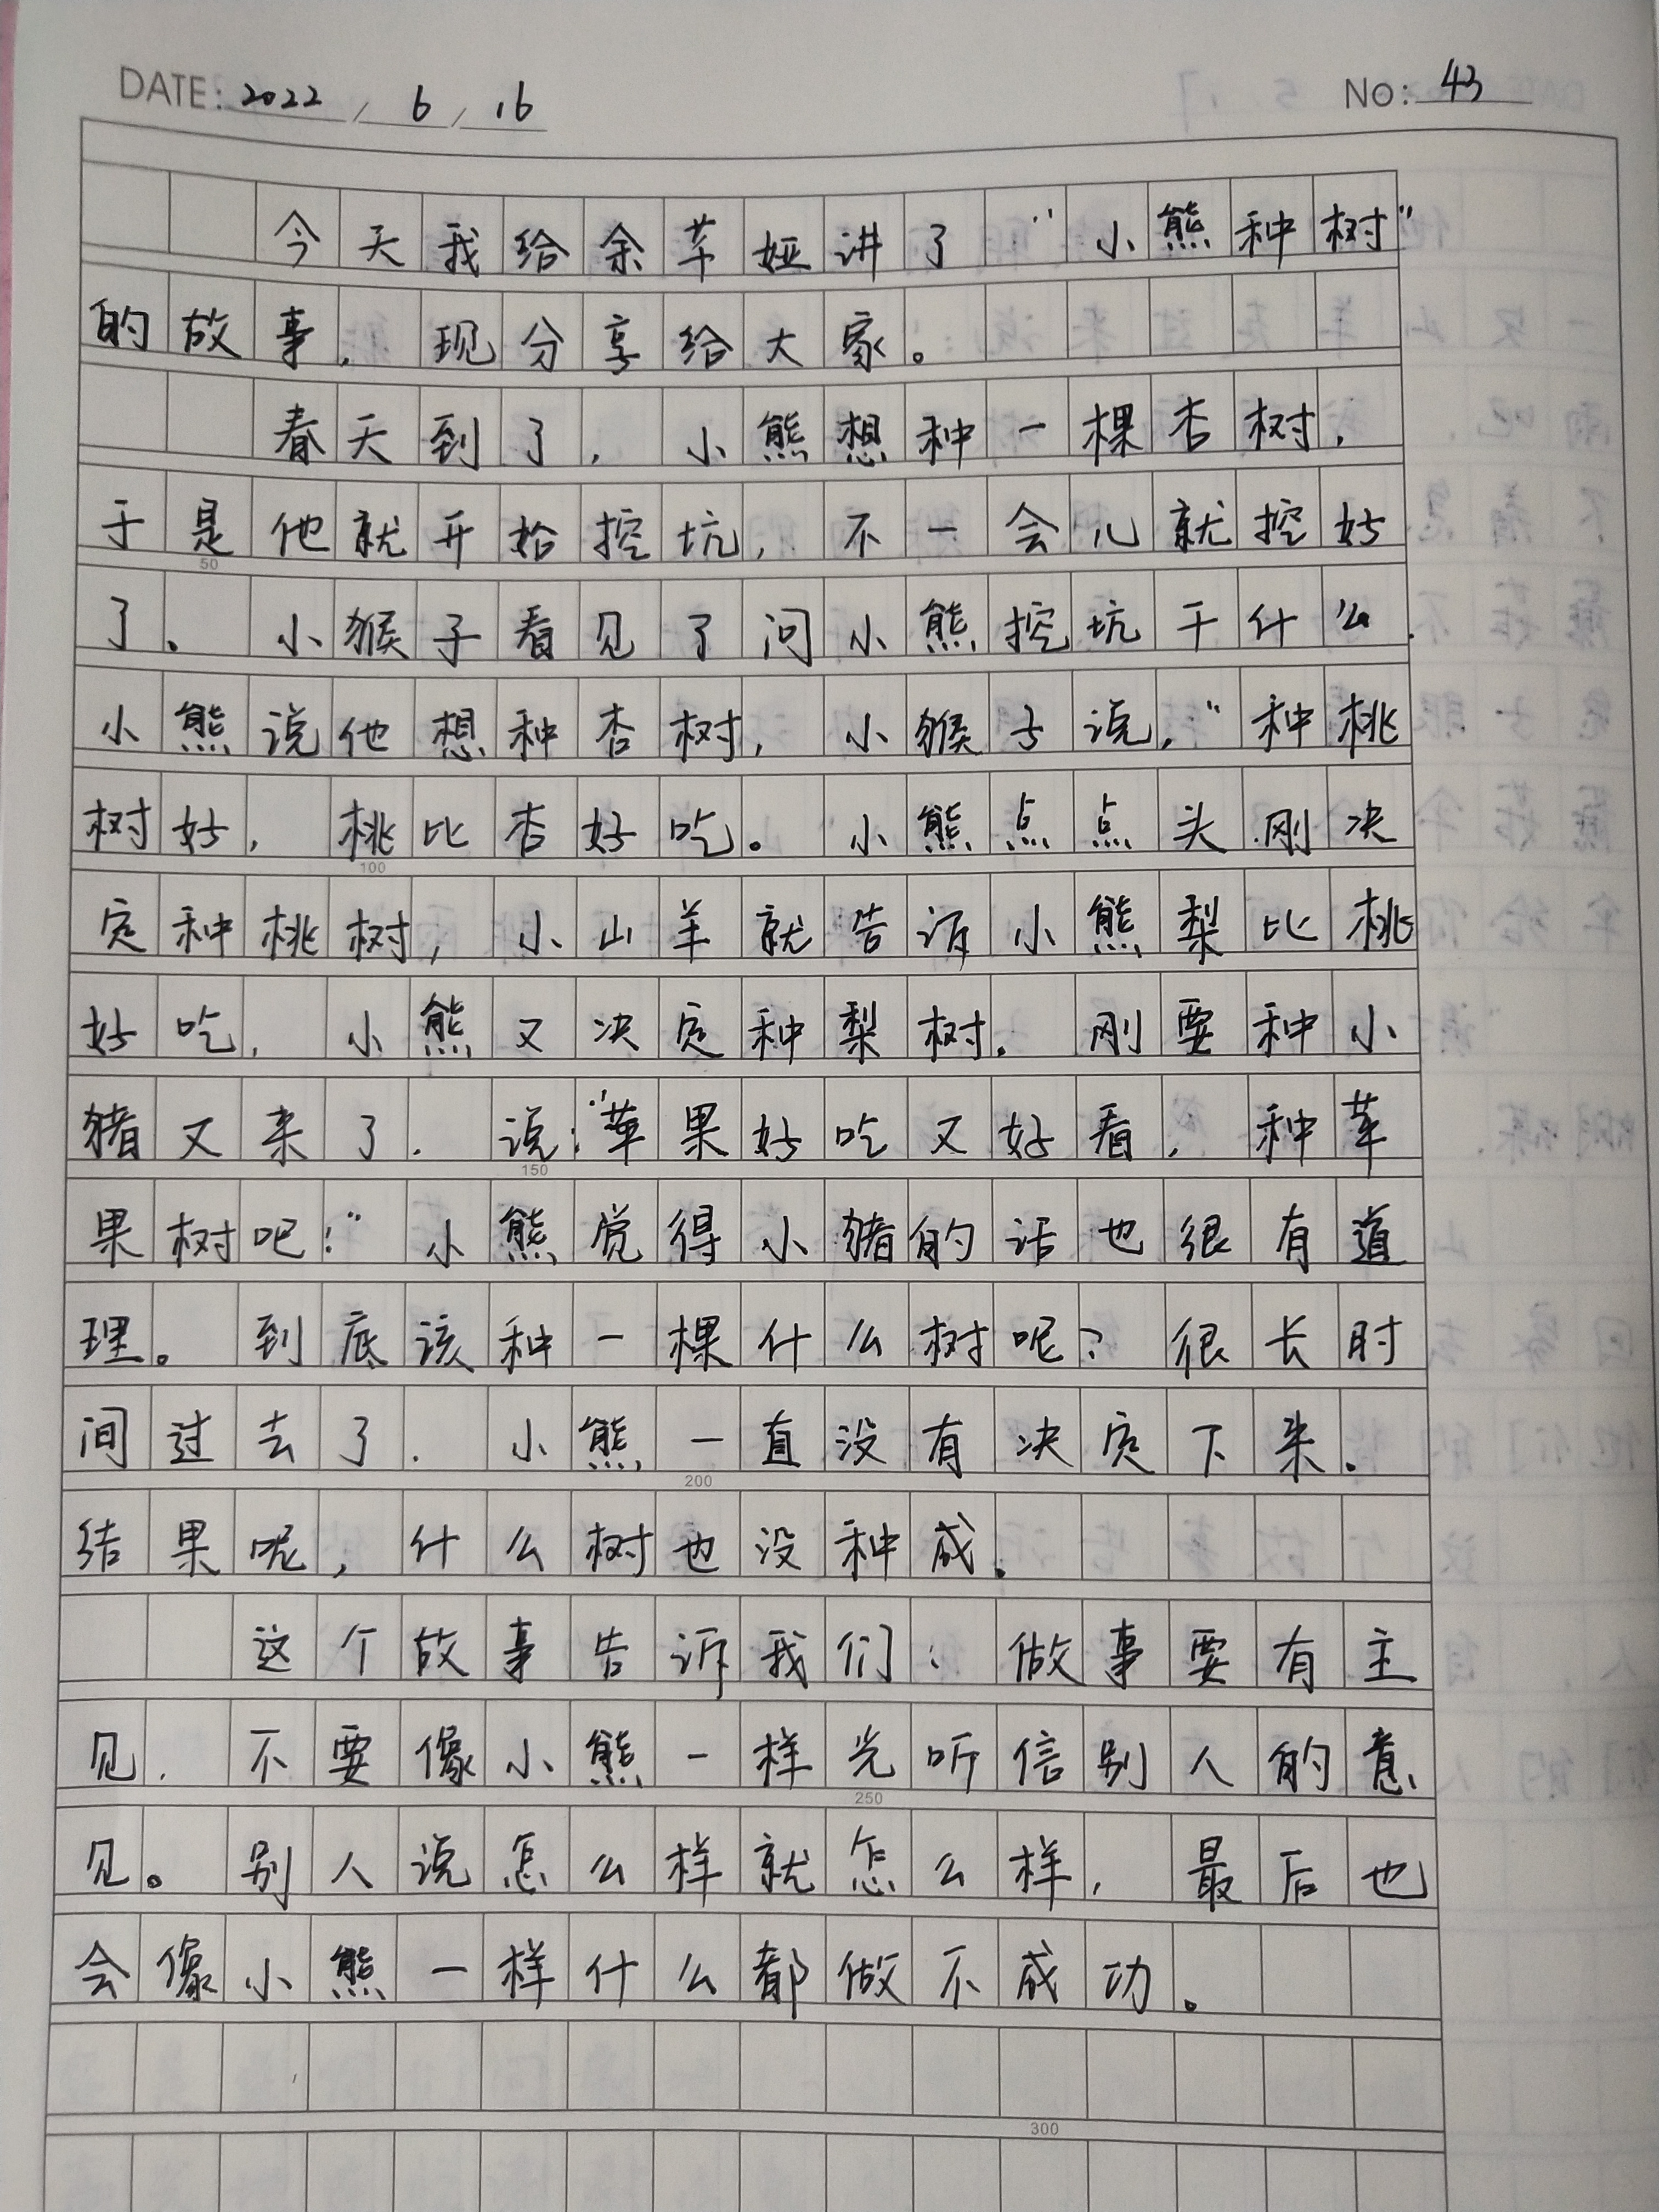 DATE: 2022 / 6 / 16 No: 43
今天我给余芊娅讲了“小熊种树”
的故事，现分享给大家。
春天到了，小熊想种一棵杏树，
于是他就开始挖坑，不一会儿就挖好
了。小猴子看见了问小熊挖坑干什么.
小熊说他想种杏树，小猴子说，“种桃
50
树好，桃比杏好吃。小熊点点头刚决
100
定种桃树，小山羊就告诉小熊梨比桃
好吃，小熊又决定种梨树。刚要种小
猪又来了．说：“苹果好吃又好看，种苹
150
果树吧！”小熊觉得小猪的话也很有道
理。到底该种一棵什么树呢？很长时
间过去了．小熊一直没有决定下来．
200
结果呢，什么树也没种成。
这个故事告诉我们：做事要有主
见．不要像小熊一样光听信别人的意
250
见。别人说怎么样就怎么样，最后也
会像小熊一样什么都做不成功。
300